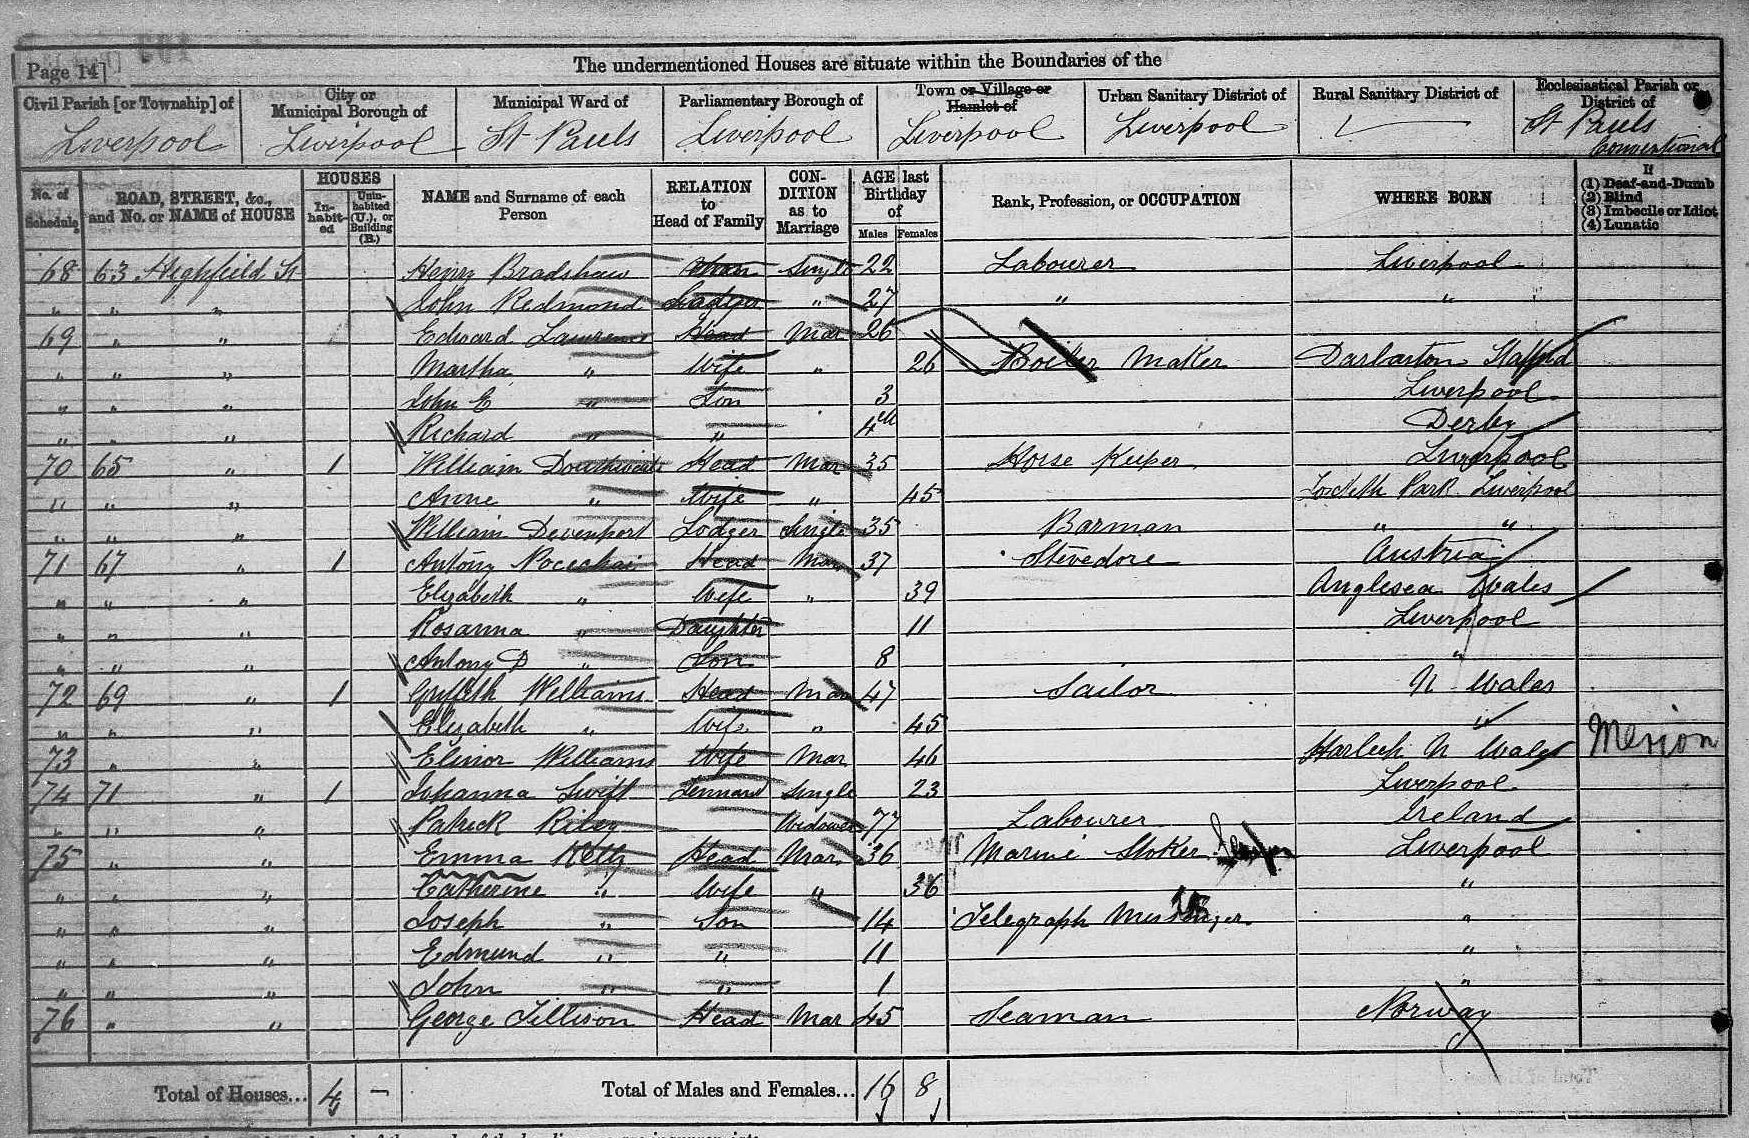 Page 14]
The undermentioned Houses are situate within the Boundaries of the
Civil Parish [or Township] of City or Municipal Borough of Municipal Ward of Parliamentary Borough of Town or Village or Hamlet of Urban Sanitary District of Rural Sanitary District of Ecclesiastical Parish or District of
Liverpool Liverpool St Pauls Liverpool Liverpool Liverpool St Pauls Conventional
No. of Schedule ROAD, STREET, &c., and No. or NAME of HOUSE HOUSES In-habit-ed Unin-habited (U.), or Building (B.) NAME and Surname of each Person RELATION to Head of Family CON-DITION as to Marriage AGE last Birthday of Males Females Rank, Profession, or OCCUPATION WHERE BORN If (1) Deaf-and-Dumb (2) Blind (3) Imbecile or Idiot (4) Lunatic
68 63 Highfield St Henry Bradshaw Single 22 Labourer Liverpool
" " " John Redmond Lodger " 27 " "
69 " " Edward Head Mar 26
" " " Martha " Wife " 26 Boiler Maker Darlaston
" " " John E " Son 3 Liverpool
" " " Richard " " 4 Derby
70 65 " 1 William Head Mar 35 Horse Keeper Liverpool
" " " Anne " Wife " 45 Toxteth Park Liverpool
" " " William Devenport Lodger Single 35 Barman " "
71 67 " 1 Antony Head Mar 37 Stevedore Austria
" " " Elizabeth " Wife " 39 Anglesea Wales
" " " Rosanna " Daughter 11 Liverpool
" " " Antony D " Son 8 "
72 69 " 1 Griffith Williams Head Mar 47 Sailor N Wales
" " " Elizabeth " Wife " 45 "
73 " " Elinor Williams Wife Mar 46 Harlech N Wales Merion
74 71 " 1 Johanna Swift Single 23 Liverpool
" " " Patrick Riley Widower 77 Labourer Ireland
75 " " Emma Kelly Head Mar 36 Marine Stoker Liverpool
" " " Catherine " Wife " 36 "
" " " Joseph " Son 14 Telegraph Messenger "
" " " Edmund " " 11 "
" " " John " " 1 "
76 " " George Head Mar 45 Seaman Norway
Total of Houses... 4 – Total of Males and Females... 16 8